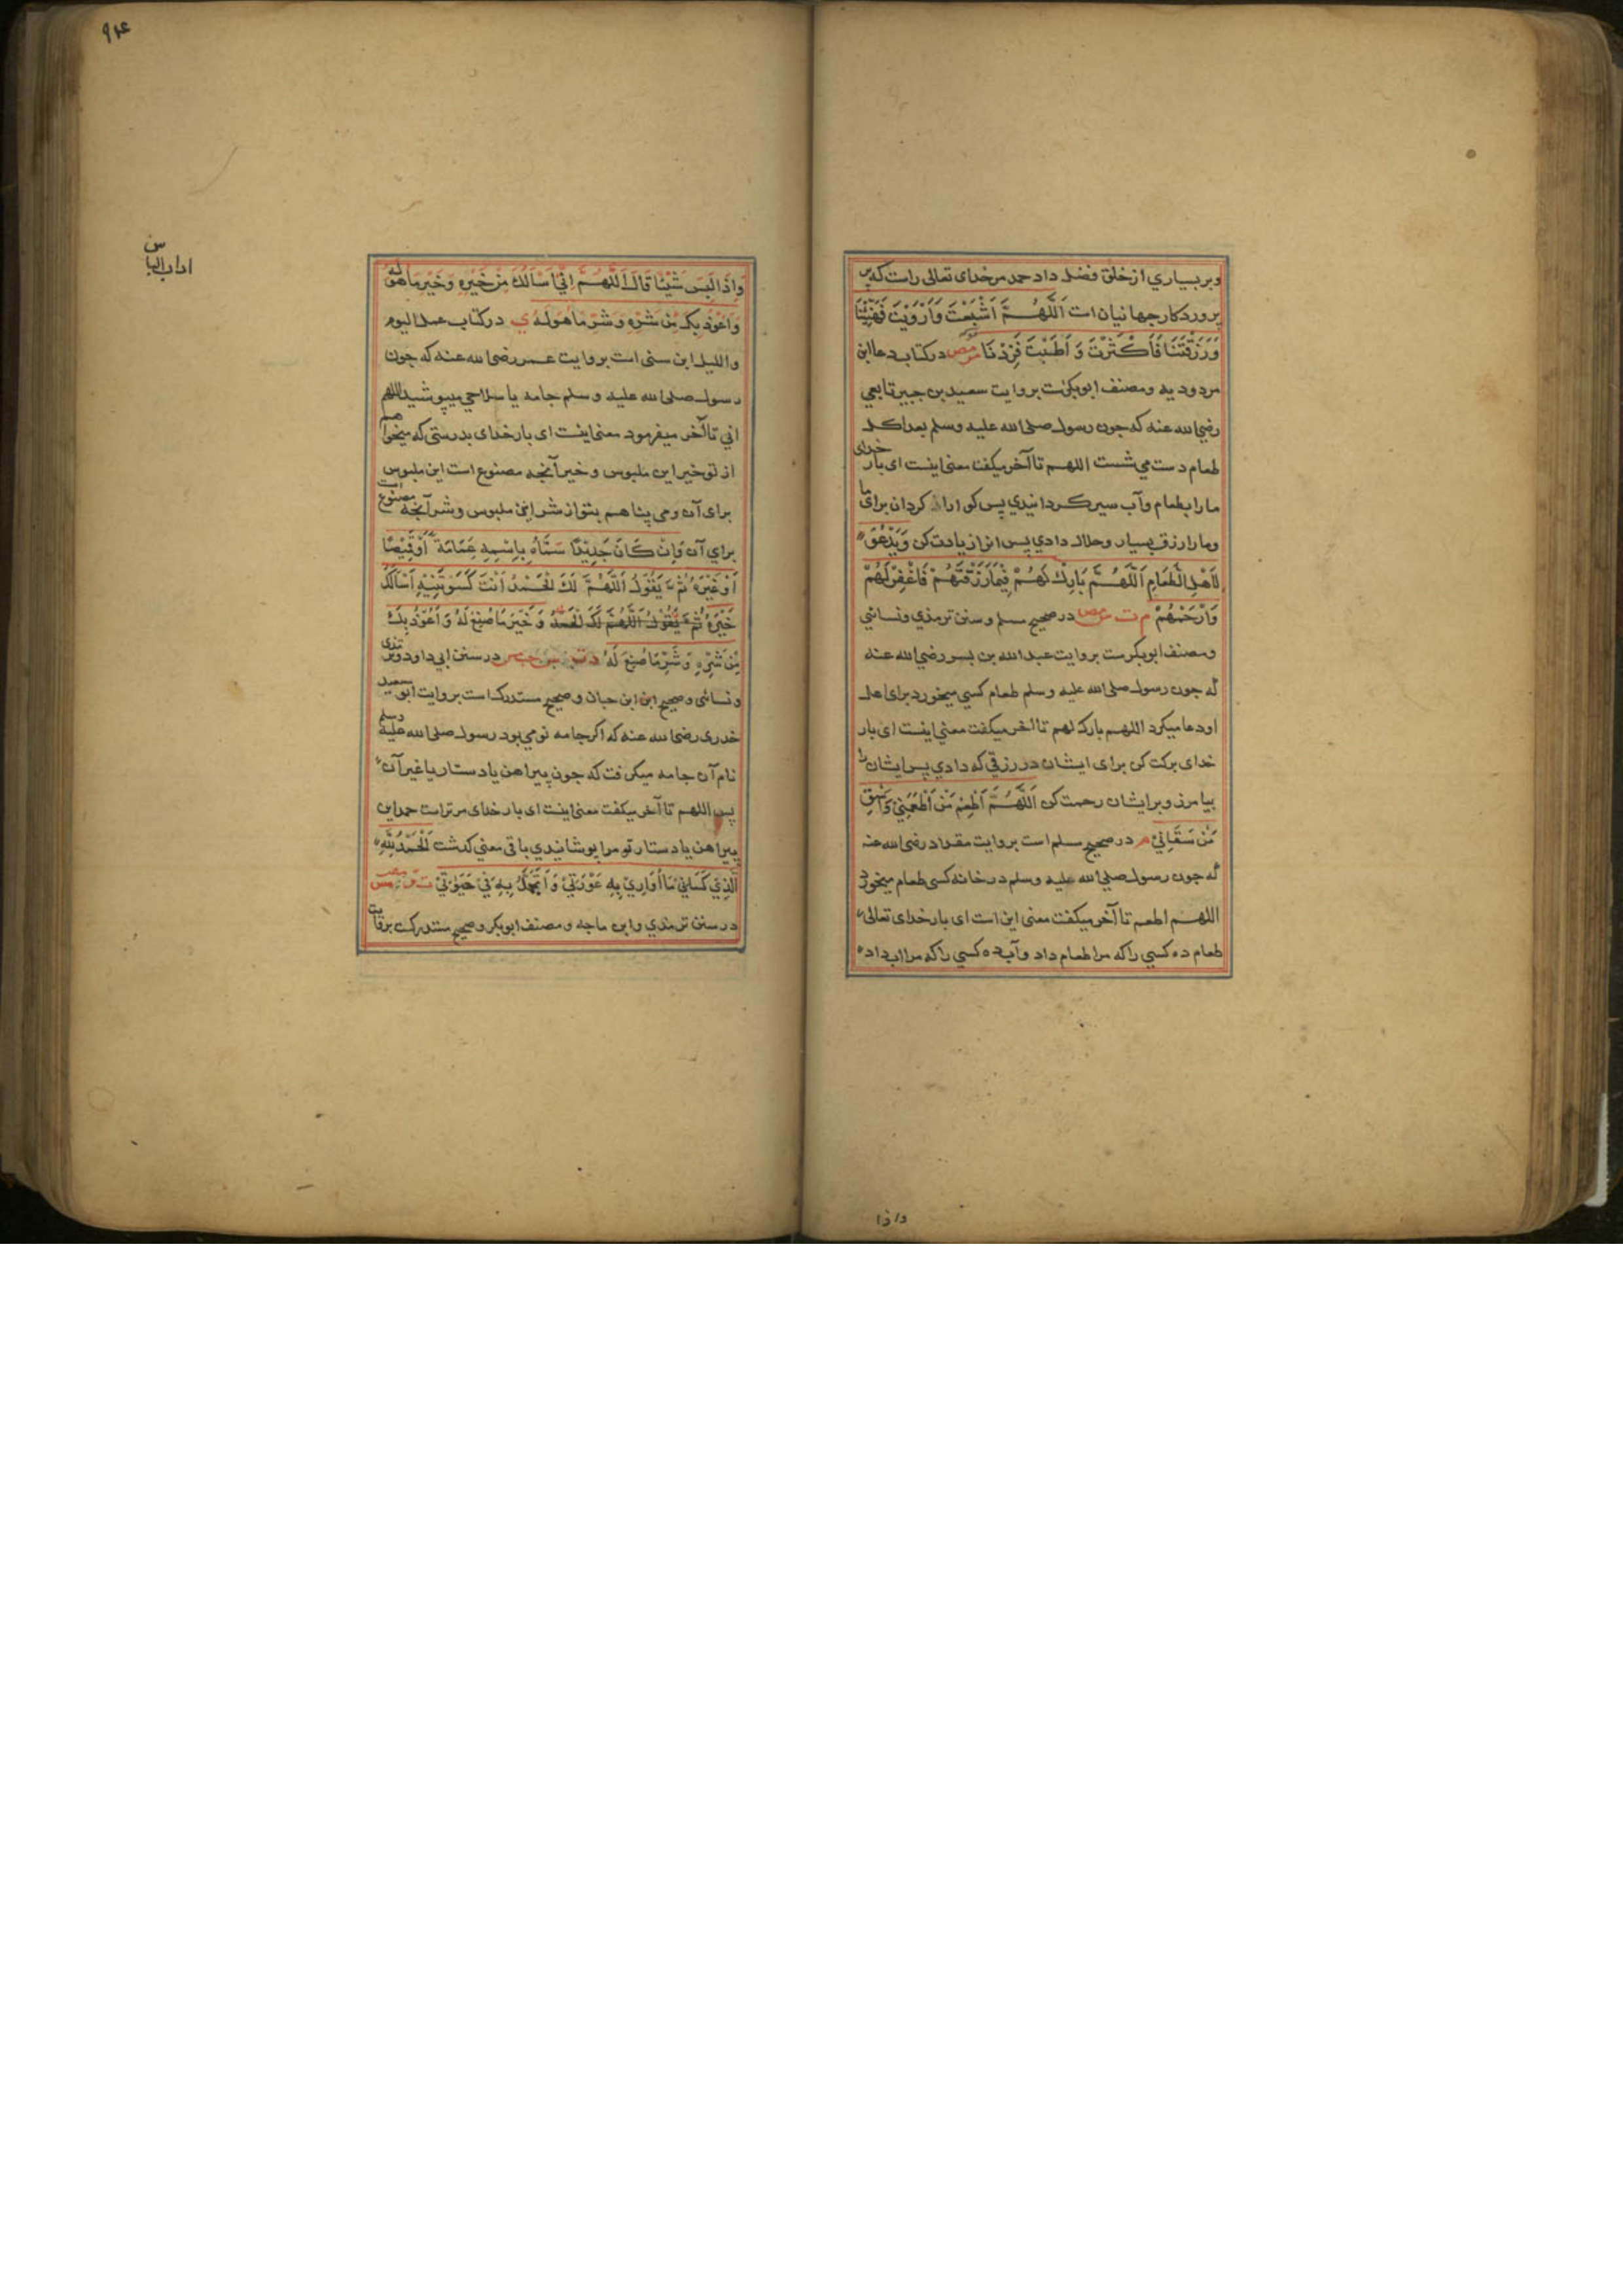 وبربسیاري از خلق فضل داد حمد مر خدای تعالی راست که
پروردکار جهانیان است اَللّٰهُمَّ اَشْبَعْتَ وَاَرْوَیْتَ فَهَنِّئْنَا
وَرَزَقْتَنَا فَاَکْثَرْتَ وَ اَطَبْتَ فَزِدْنَا مومص در کتاب دعا ابن
مردودیه ومصنف ابوبکرست بروایت سعید بن جبیر تابعی
رضی الله عنه که جون رسول صلی الله علیه وسلم بعد اکل
طعام دست می شست اللهم تا آخر میکفت معنی اینست ای بار خدای
ما را بطعام وآب سیر کردانیدي پس کوارا ن کردان برای ما
وما را رزق بسیار وحلال دادي پس انرا زیادت کن وَیَدْعُوْ
لِاَهْلِ الطَّعَامِ اَللّٰهُمَّ بَارِكْ لَهُمْ فِیْمَا رَزَقْتَهُمْ فَاغْفِرْ لَهُمْ
وَارْحَمْهُمْ م ت س مص در صحیح مسلم و سنن ترمذي ونسائي
ومصنف ابوبکرست بروایت عبدالله بن بسر رضی الله عنه
که جون رسول صلی الله علیه وسلم طعام کسي میخورد برای اهل
او دعا میکرد اللهم بارك لهم تا اخر میکفت معنی اینست ای بار
خدای برکت کن برای ایشان در رزقی که دادي پس ایشان را
بیامرز وبر ایشان رحمت کن اَللّٰهُمَّ اَطْعِمْ مَنْ اَطْعَمَنِيْ وَاسْقِ
مَنْ سَقَانِيْ م در صحیح مسلم است بروایت مقداد رضی الله عنه
که جون رسول صلی الله علیه وسلم در خانه کسی طعام میخورد
اللهم اطعم تا آخر میکفت معنی این است ای بار خدای تعالی
طعام ده کسي را که مرا طعام داد وآب ده کسي را که مرا اب داد
واذا
۹۴
اداب الباس
وَاِذَا لَبِسَ شَیْئًا قَالَ اَللّٰهُمَّ اِنِّيْ اَسْأَلُكَ مِنْ خَیْرِهِ وَخَیْرِ مَا هُوَ لَهُ
وَاَعُوْذُ بِكَ مِنْ شَرِّهِ وَ شَرِّ مَا هُوَ لَهُ ي در کتاب عمل الیوم
واللیل ابن سنی است بروایت عمر رضی الله عنه که جون
رسول صلی الله علیه وسلم جامه یا سلاحي میپوشید اللهم
اني تا آخر میفرمود معنی اینست ای بار خدای بدرستی که میخواهم
از تو خیر این ملبوس وخیر آنجه مصنوع است این ملبوس
برای آن ومی پناهم بتو از شر این ملبوس وشر آنجه مصنوع است
برای آن وَاِنْ کَانَ جَدِیْدًا سَمَّاهُ بِاِسْمِهِ عِمَامَةً اَوْ قَمِیْصًا
اَوْ غَیْرَهُ ثُمَّ یَقُوْلُ اَللّٰهُمَّ لَكَ الْحَمْدُ اَنْتَ کَسَوْتَنِیْهِ اَسْأَلُكَ
خَیْرَهُ ثُمَّ یَقُوْلُ اَللّٰهُمَّ لَكَ الْحَمْدُ وَ خَیْرَ مَا صُنِعَ لَهُ وَاَعُوْذُ بِكَ
مِنْ شَرِّهِ وَشَرِّ مَا صُنِعَ لَهُ د ت س حب مس در سنن ابي داود وترمذی
ونسائی وصحیح ابن ابن حبان وصحیح مستدرك است بروایت ابو سعید
خدری رضی الله عنه که اکر جامه نو می بود رسول صلی الله علیه وسلم
نام آن جامه میکرفت که جون پیراهن یا دستار یا غیر آن
پس اللهم تا آخر میکفت معنی اینست ای بار خدای مر تراست حمد این
پیراهن یا دستار تو مرا پوشانیدي باقی معني کذشت اَلْحَمْدُ لِلّٰهِ
الَّذِيْ کَسَانِيْ مَا اُوَارِيْ بِهِ عَوْرَتِيْ وَاَتَجَمَّلُ بِهِ فِيْ حَیٰوتِيْ ت ق مص مس
در سنن ترمذي وابن ماجه ومصنف ابوبکر وصحیح مستدرکست بروایت